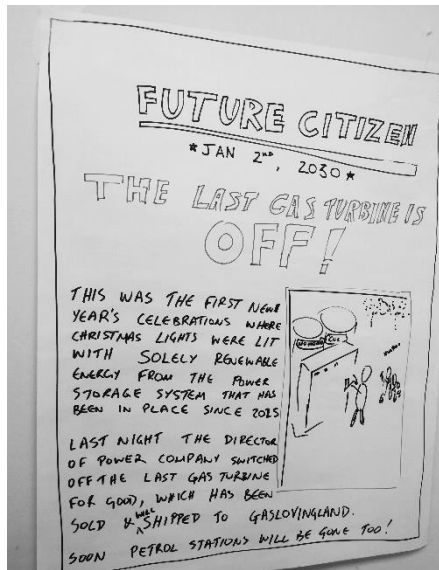 FUTURE CITIZEN
*JAN 2nd, 2030*
THE LAST GAS TURBINE IS
OFF!
THIS WAS THE FIRST NEW
YEAR'S CELEBRATIONS WHERE
CHRISTMAS LIGHTS WERE LIT
WITH SOLELY RENEWABLE
ENERGY FROM THE POWER
STORAGE SYSTEM THAT HAS
BEEN IN PLACE SINCE 2025
LAST NIGHT THE DIRECTOR
OF POWER COMPANY SWITCHED
OFF THE LAST GAS TURBINE
FOR GOOD, WHICH HAS BEEN
SOLD & WILL SHIPPED TO GASLOVINGLAND.
SOON PETROL STATIONS WILL BE GONE TOO!